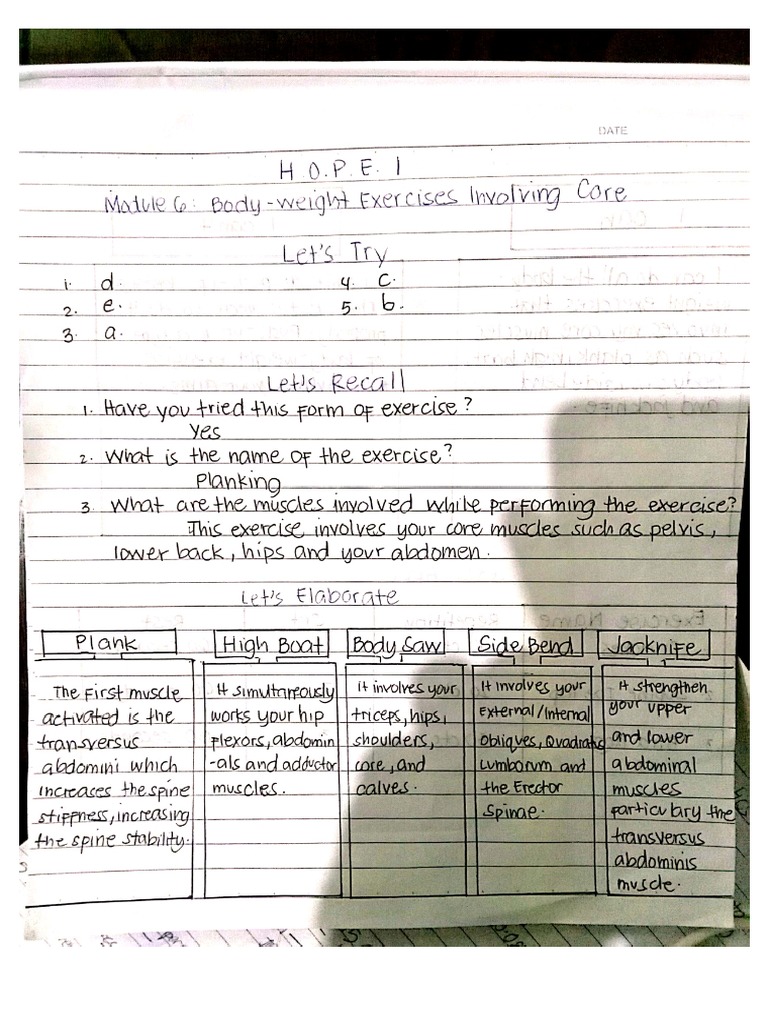 DATE
H.O.P.E. 1
Module 6: Body-weight Exercises Involving Core
Let's Try
1. d. 4. c.
2. e. 5. b.
3. a.
Let's Recall
1. Have you tried this form of exercise?
Yes
2. What is the name of the exercise?
Planking
3. What are the muscles involved while performing the exercise?
This exercise involves your core muscles such as pelvis,
lower back, hips and your abdomen.
Let's Elaborate
Plank
The first muscle
activated is the
transversus
abdomini which
increases the spine
stiffness, increasing
the spine stability.
High Boat
It simultaneously
works your hip
flexors, abdomin
-als and adductor
muscles.
Body Saw
it involves your
triceps, hips,
shoulders,
core, and
calves.
Side Bend
It involves your
External/Internal
Obliques, Quadratus
Lumborum and
the Erector
Spinae.
Jacknife
It strengthen
your upper
and lower
abdominal
muscles
particulary the
transversus
abdominis
muscle.